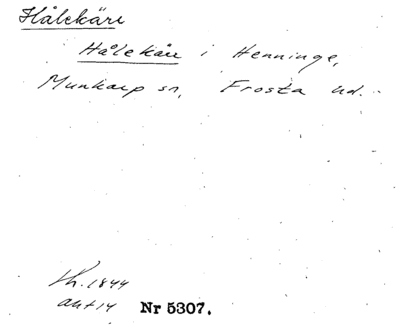 Hålekärr
Hålekärr i Henninge,
Munkarp sn, Frosta hd.
Sk. 1844
akt 14 Nr 5307.